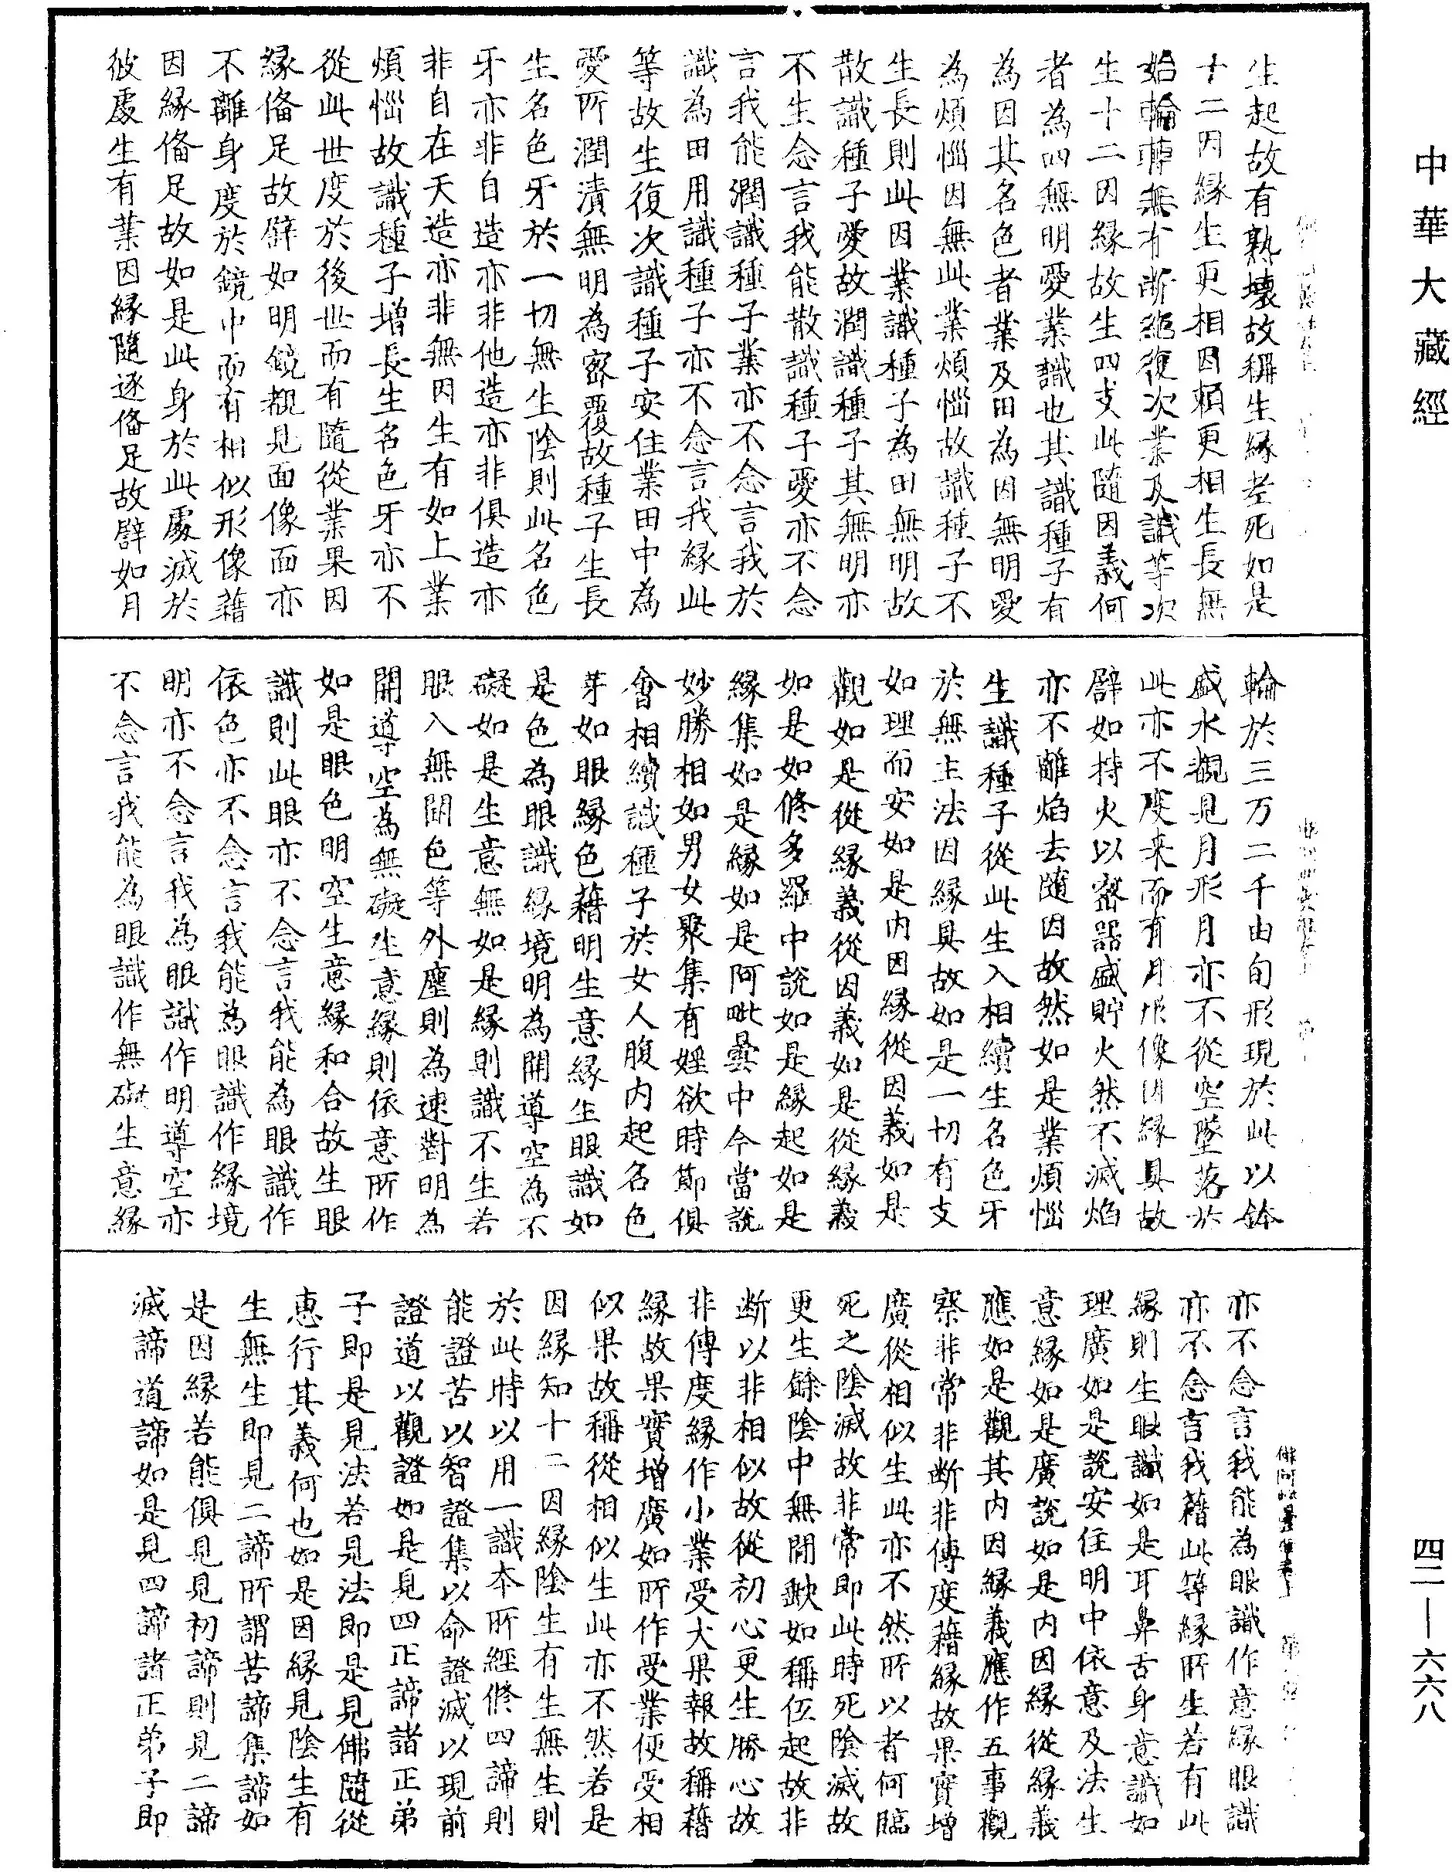 中華大藏經
生起故有熟壞故稱生緣老死如是
十二因緣生更相因賴更相生長無
始輪轉無有断絕復次業及識等次
生十二因緣故生四支此隨因義何
者為四無明愛業識也其識種子有
為因其名色者業及田為因無明愛
為煩惱因無此業煩惱故識種子不
生長則此因業識種子為田無明故
散識種子愛故潤識種子其無明亦
不生念言我能散識種子愛亦不念
言我能潤識種子業亦不念言我於
識為田用識種子亦不念言我緣此
等故生復次識種子安住業田中為
愛所潤漬無明為密覆故種子生長
生名色牙於一切無生陰則此名色
牙亦非自造亦非他造亦非俱造亦
非自在天造亦非無因生有如上業
煩惱故識種子增長生名色牙亦不
從此世度於後世而有隨從業果因
緣俻足故辟如明鏡覩見面像面亦
不離身度於鏡中而有相似形像藉
因緣俻足故如是此身於此處滅於
彼處生有業因緣隨逐俻足故辟如月
輪於三万二千由旬形現於此以鉢
盛水觀見月形月亦不從空墜落於
此亦不度来而有月形像因緣具故
辟如持火以密器盛貯火然不滅焰
亦不離焰去隨因故然如是業煩惱
生識種子從此生入相續生名色牙
於無主法因緣具故如是一切有支
如理而安如是内因緣從因義如是
觀如是從緣義從因義如是從緣義
如是如修多羅中說如是緣起如是
緣集如是緣如是阿毗曇中今當說
妙勝相如男女聚集有婬欲時節俱
會相續識種子於女人腹内起名色
芽如眼緣色藉明生意緣生眼識如
是色為眼識緣境明為開導空為不
礙如是生意無如是緣則識不生若
眼入無開色等外塵則為速對明為
開導空為無礙生意緣則依意所作
如是眼色明空生意緣和合故生眼
識則此眼亦不念言我能為眼識作
依色亦不念言我能為眼識作緣境
明亦不念言我為眼識作明導空亦
不念言我能為眼識作無礙生意緣
亦不念言我能為眼識作意緣眼識
亦不念言我藉此等緣所生若有此
緣則生眼識如是耳鼻舌身意識如
理廣如是說安住明中依意及法生
意緣如是廣說如是内因緣從緣義
應如是觀其内因緣義應作五事觀
察非常非断非傳度藉緣故果實增
廣從相似生此亦不然所以者何臨
死之陰滅故非常即此時死陰滅故
更生餘陰中無間歇如稱伍起故非
断以非相似故從初心更生勝心故
非傳度緣作小業受大果報故稱藉
緣故果實增廣如所作受業便受相
似果故稱從相似生此亦不然若是
因緣知十二因緣陰生有生無生則
於此時以用一識本所經修四諦則
能證苦以智證集以命證滅以現前
證道以觀證如是見四正諦諸正弟
子即是見法若見法即是見佛隨從
惠行其義何也如是因緣見陰生有
生無生即見二諦所謂苦諦集諦如
是因緣若能俱見見初諦則見二諦
滅諦道諦如是見四諦諸正弟子即
四二—六六八